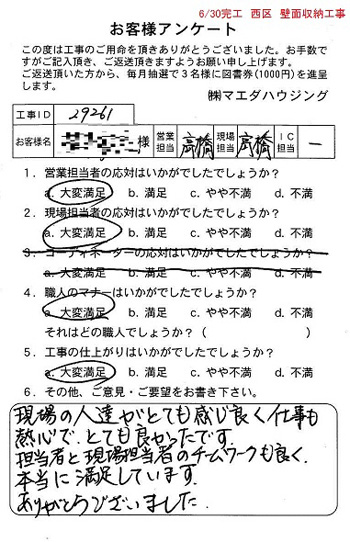 6/30完工 西区 壁面収納工事
お客様アンケート
この度は工事のご用命を頂きありがとうございました。お手数で
すがご記入頂き、ご返送頂きますようお願い申し上げます。
ご返送頂いた方から、毎月抽選で3名様に図書券(1000円)を進呈
します。
㈱マエダハウジング
工事ID 29261
お客様名 様 営業担当 高橋 現場担当 高橋 IC担当 ー
1．営業担当者の応対はいかがでしたでしょうか？
a. 大変満足 b. 満足 c. やや不満 d. 不満
2．現場担当者の応対はいかがでしたでしょうか？
a. 大変満足 b. 満足 c. やや不満 d. 不満
3．コーディネーターの応対はいかがでしたでしょうか？
a. 大変満足 b. 満足 c. やや不満 d. 不満
4．職人のマナーはいかがでしたでしょうか？
a. 大変満足 b. 満足 c. やや不満 d. 不満
それはどの職人でしょうか？（ ）
5．工事の仕上がりはいかがでしたでしょうか？
a. 大変満足 b. 満足 c. やや不満 d. 不満
6．その他、ご意見・ご要望をお書き下さい。
現場の人達がとても感じ良く仕事も
熱心で、とても良かったです。
担当者と現場担当者のチームワークも良く、
本当に満足しています。
ありがとうございました。